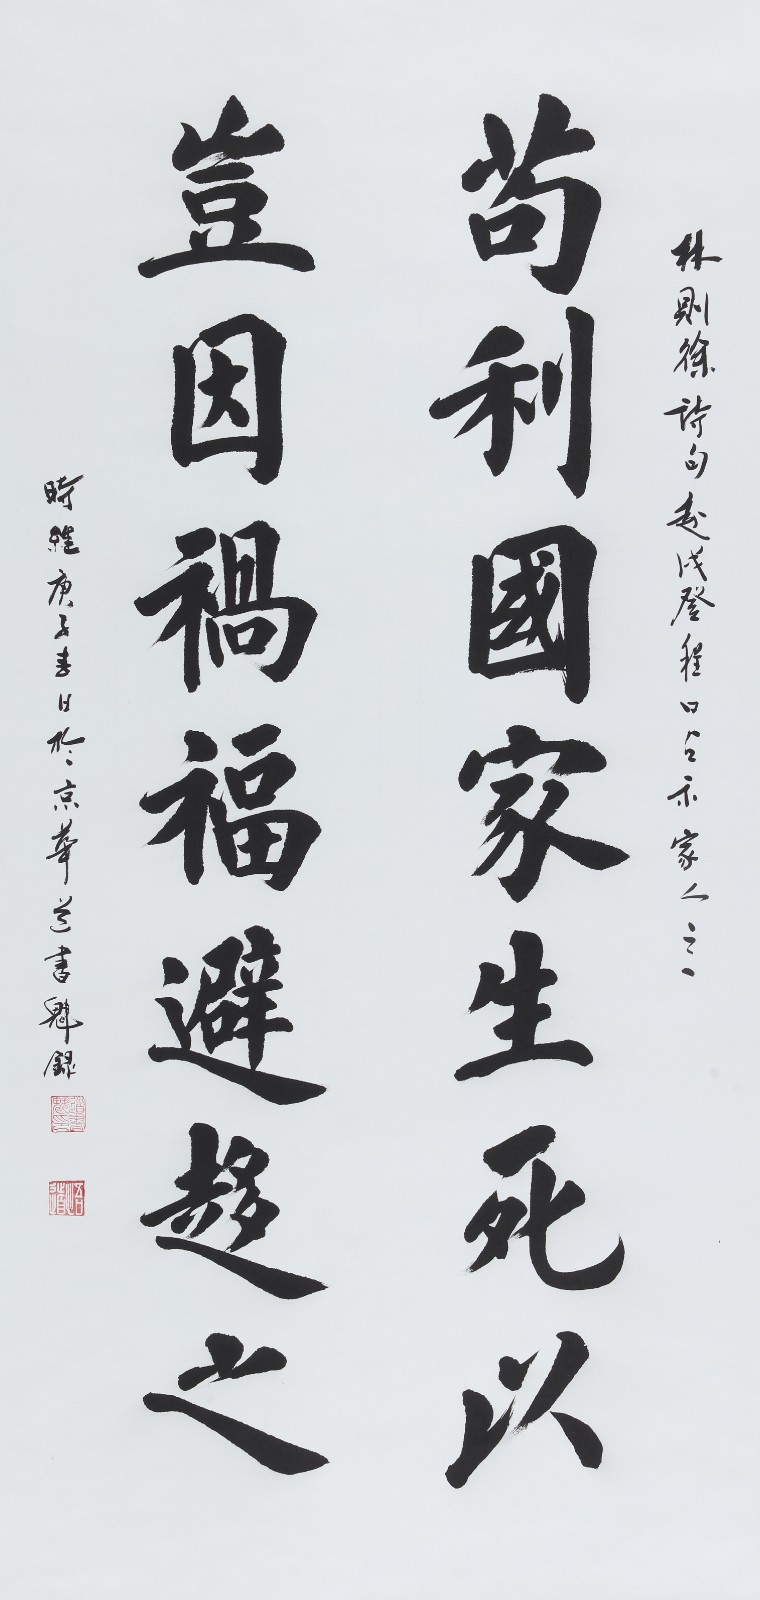 林則徐詩句赴戍登程口占示家人之一
苟利國家生死以
豈因禍福避趨之
時維庚子春日於京華道書魁錄